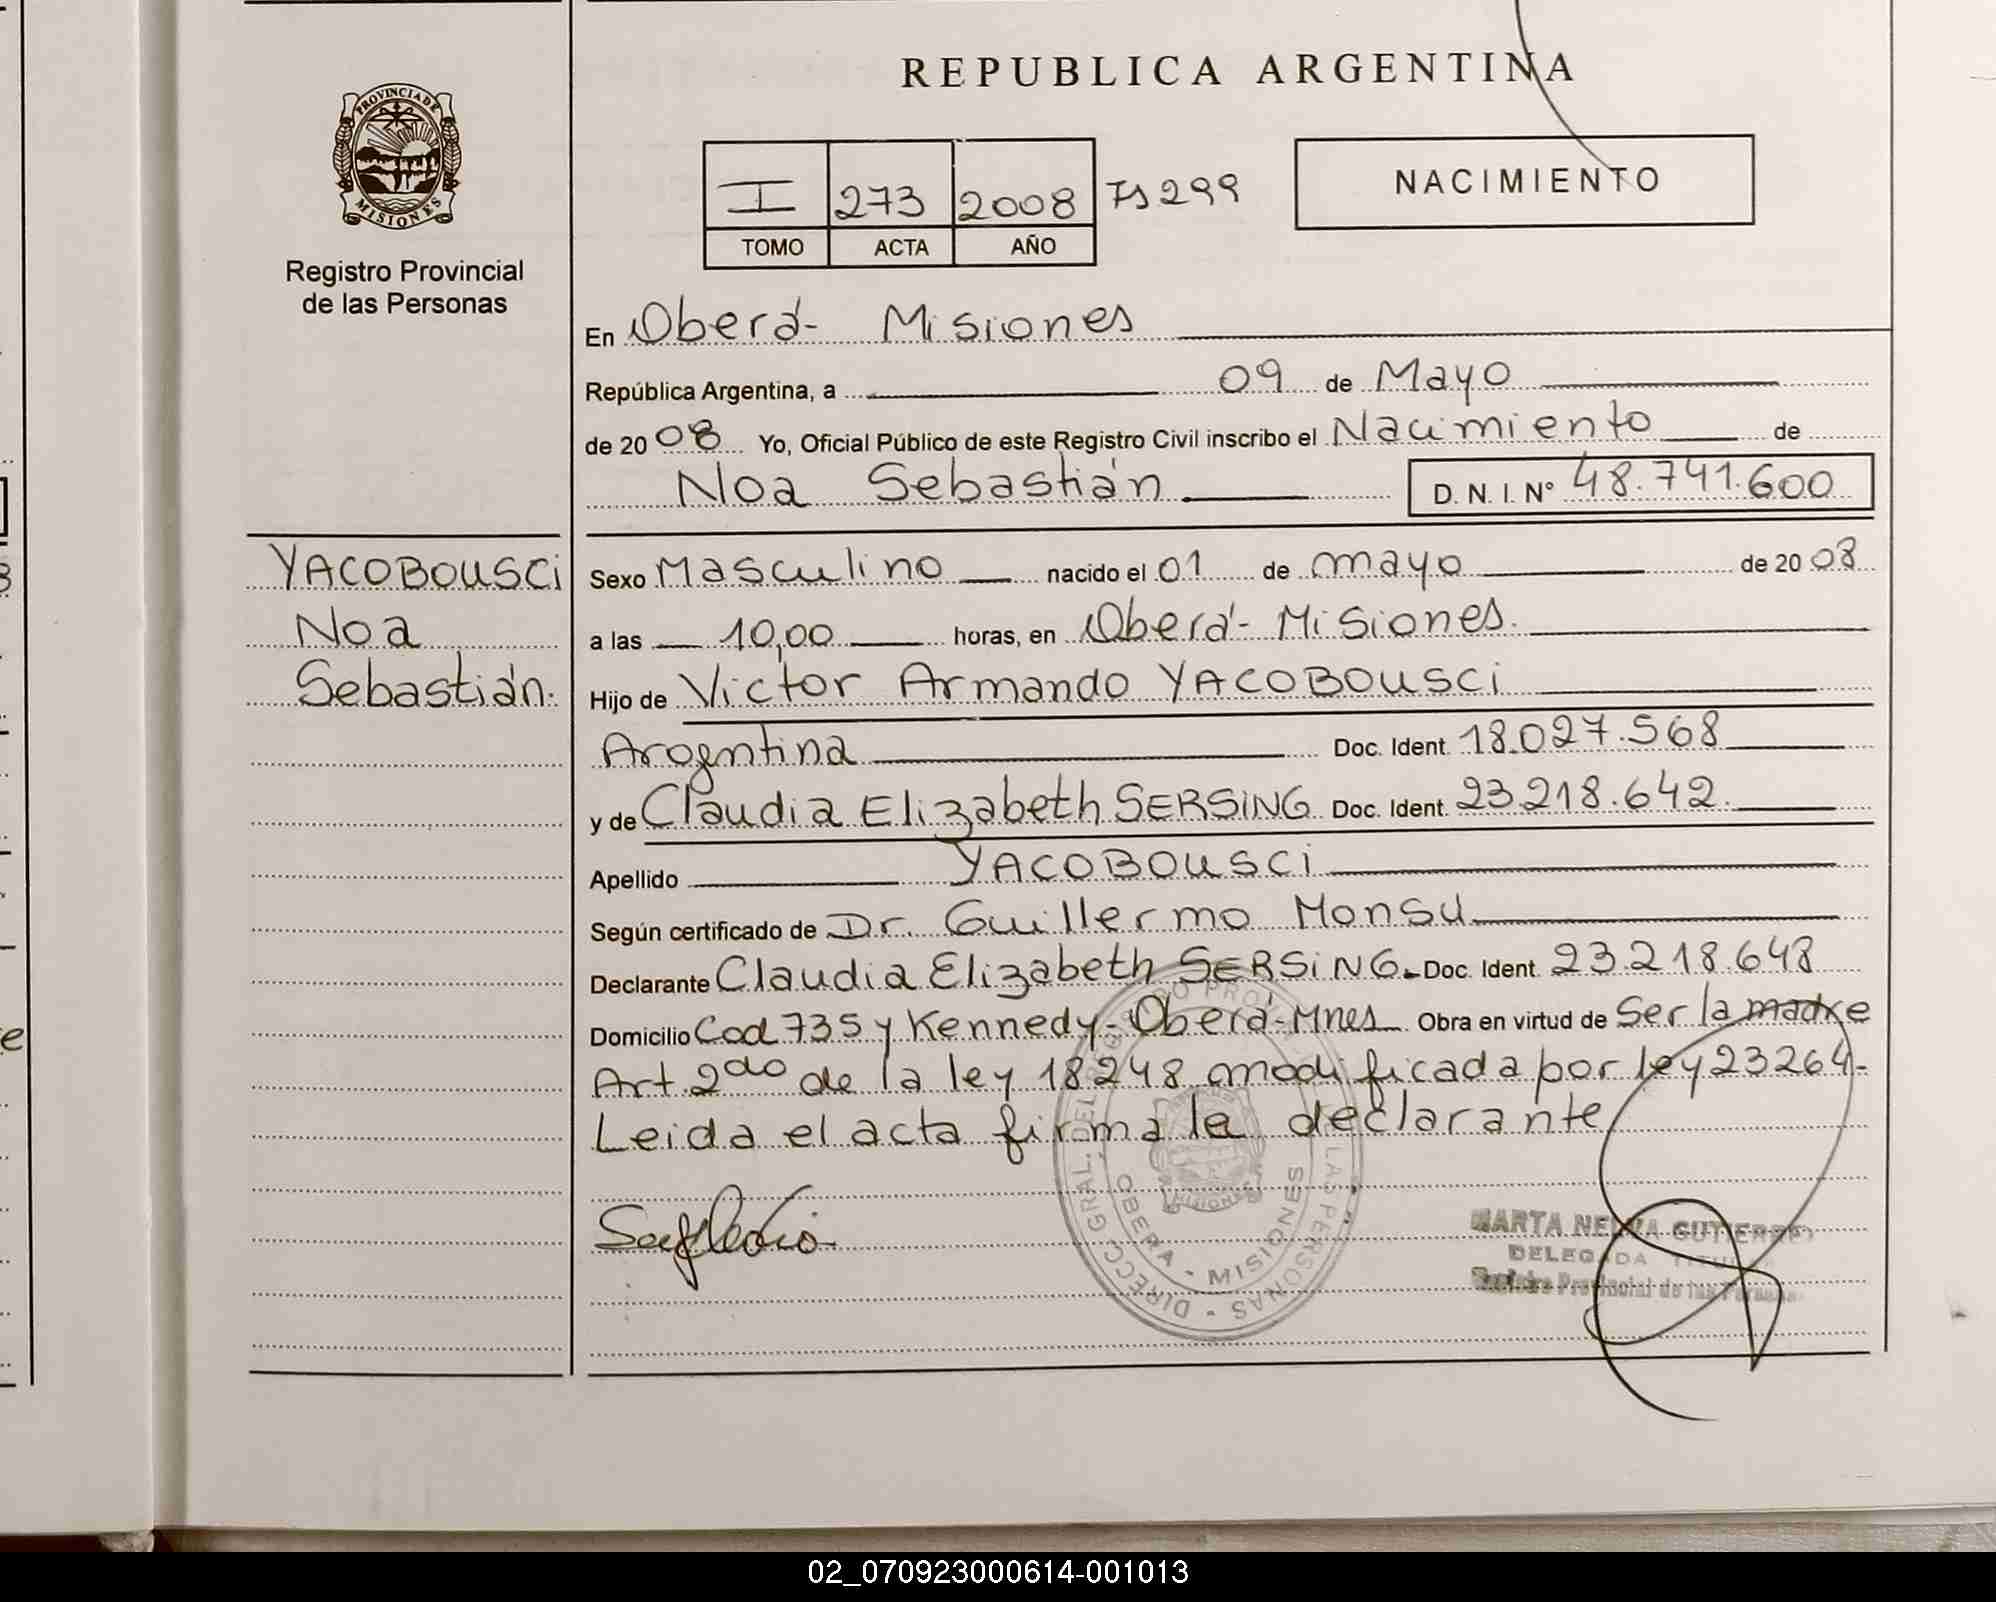 REPUBLICA ARGENTINA
PROVINCIA DE
MISIONES
Registro Provincial
de las Personas
I 273 2008 Fs 299
TOMO ACTA AÑO
NACIMIENTO
En Oberá - Misiones
República Argentina, a 09 de Mayo
de 20 08 Yo, Oficial Público de este Registro Civil inscribo el Nacimiento de
Noa Sebastián D. N. I. Nº 48.741.600
YACOBOUSCi
Noa
Sebastián.
Sexo Masculino nacido el 01 de mayo de 20 08
a las 10,00 horas, en Oberá - Misiones.
Hijo de Victor Armando YACOBOUSCi
Argentina Doc. Ident. 18.027.568
y de Claudia Elizabeth SERSiNG Doc. Ident. 23.218.642.
Apellido YACOBOUSCi
Según certificado de Dr. Guillermo Monsu
Declarante Claudia Elizabeth SERSiNG. Doc. Ident. 23.218.648
Domicilio Cod 735 y Kennedy - Oberá - Mnes Obra en virtud de Ser la madre
Art. 2do de la ley 18248 modificada por ley 23264-
Leida el acta firma la declarante
OBERA - MISIONES
MARTA GUTIERREZ
DELEGADA
Registro Provincial de las Personas
02_070923000614-001013